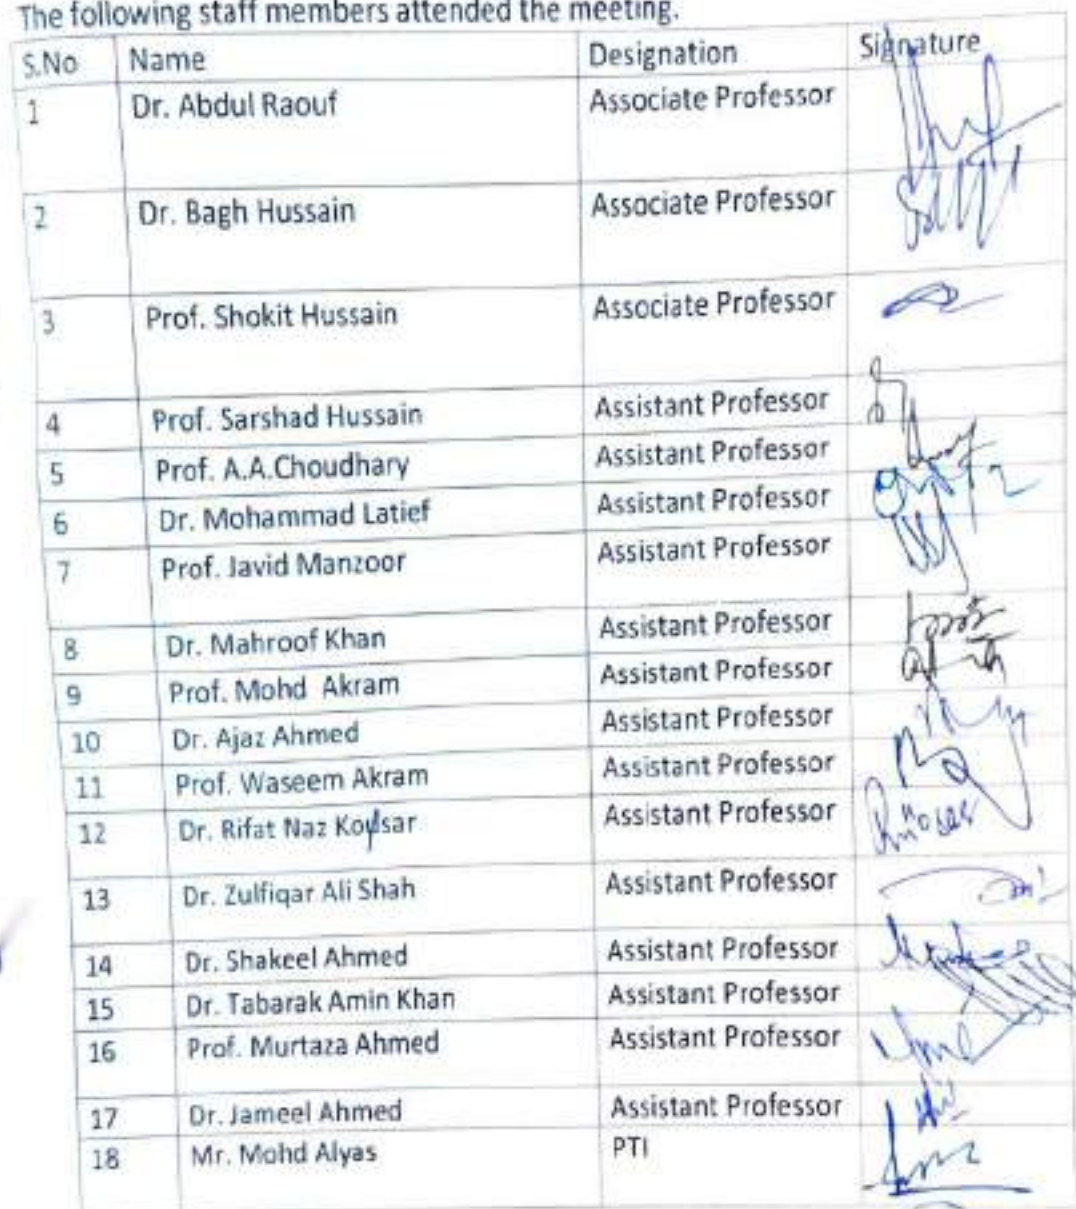 The following staff members attended the meeting.
S.No Name Designation Signature
1 Dr. Abdul Raouf Associate Professor
2 Dr. Bagh Hussain Associate Professor
3 Prof. Shokit Hussain Associate Professor
4 Prof. Sarshad Hussain Assistant Professor
5 Prof. A.A.Choudhary Assistant Professor
6 Dr. Mohammad Latief Assistant Professor
7 Prof. Javid Manzoor Assistant Professor
8 Dr. Mahroof Khan Assistant Professor
9 Prof. Mohd Akram Assistant Professor
10 Dr. Ajaz Ahmed Assistant Professor
11 Prof. Waseem Akram Assistant Professor
12 Dr. Rifat Naz Assistant Professor
13 Dr. Zulfiqar Ali Shah Assistant Professor
14 Dr. Shakeel Ahmed Assistant Professor
15 Dr. Tabarak Amin Khan Assistant Professor
16 Prof. Murtaza Ahmed Assistant Professor
17 Dr. Jameel Ahmed Assistant Professor
18 Mr. Mohd Alyas PTI